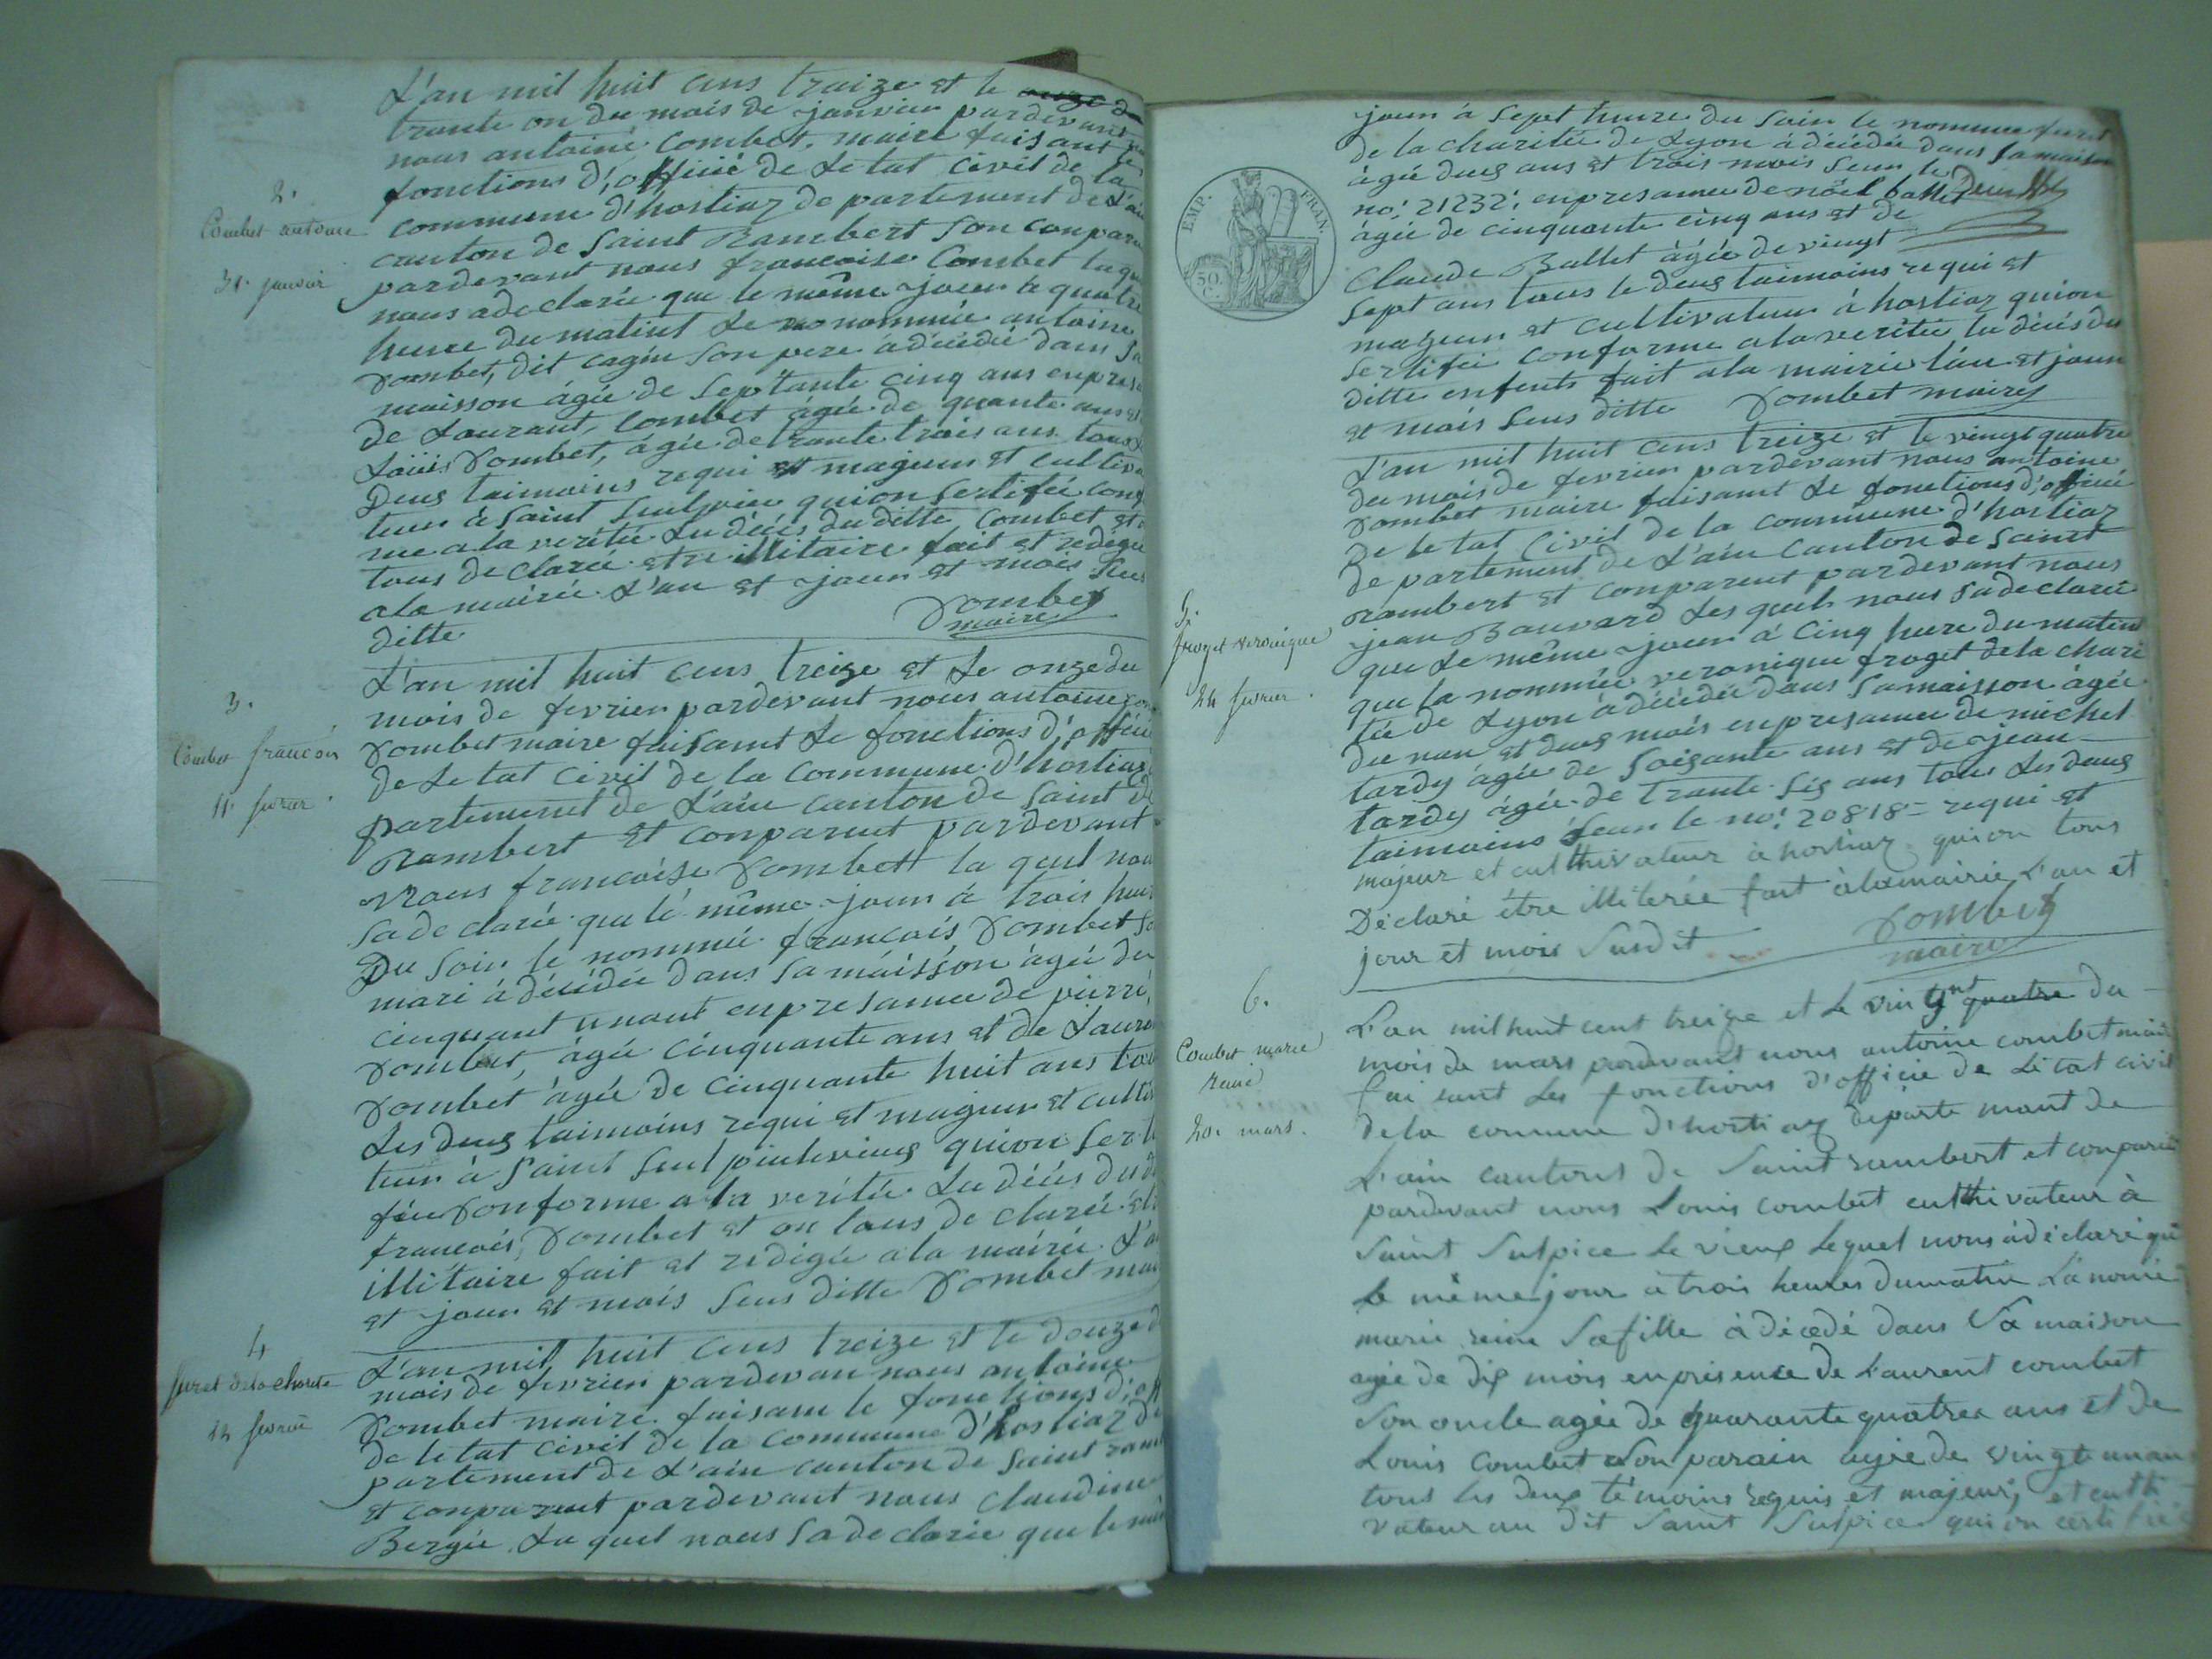 L'an mil huit cens traize et le
trante on du mois de janvier pardevant
nous antoine Combet, maire faisant le
fonctions d'officié de Letat civil de la
2.
Combet antoine
31. janvier
commune d'hostiaz departement de L'ain
canton de Saint Rambert Son conparu
pardevant nous francoise Combet laque
nous adeclarée que le même jour a quatre
heure du matint Le nonommée antoine
Combet, dit cagin Son pere adécédé dans Sa
maisson âgée de Septante cinq ans enpresa
de Laurant, Combet âgée de quante ans et
Loüis Combet, âgée de trante trois ans tous
deus taimoins requi et majeur et cultiva
teur à Saint Sulpice quion Sertifée conf
me a la veritée Ludécés du ditte Combet et
tous declarée etre illitaire fait et redigée
ala mairie L'an et jour et mois Sus
ditte
Combet
maire
3.
Combet françois
11. fevrier.
L'an mil huit cens treize et Le onze du
mois de fevrier pardevant nous antoine
Combet maire faisant Le fonctions d'officié
de Letat civil de la commune d'hostiaz
partement de L'ain canton de Saint
Rambert et conparut pardevant
Nous francoise Combett la quel nou
Sadeclarée que lé même jour à trois heur
Du Soir le nommée francois Combet So
mari à décédée dans Sa maisson âgée de
cinquant unant enpresance de pierre,
Combet, âgée cinquante ans et de Laura
Combet âgée de cinquante huit ans tou
Les deus taimoins requi et majeur et culti
teur à Saint Seulpice levieus quion Serti
fée Conforme a la veritée Ludécés du d
francois, Combet et on tous declarée et
illitaire fait et redigée ala mairie L'a
et jour et mois Sus ditte Combet mai
4
furet de la charite
12 fevrier
L'an mil huit cens treize et le douze d
mois de fevrier pardevan nous antoine
Combet maire faisant le fonctions d'off
de Letat civil de la commune d'hostiaz de
partement de L'ain canton de Saint ram
et conparut pardevant nous claudine
Bergée Laquel nous Sadeclarie que le mê
jour à Sept heure du Soir le nommée furet
de la charitée de Lyon à décédée dans Samaison
âgée deus ans et trois mois Seur le
no! 21232! enpresance de noël ballet
âgée de cinquante cinq ans et de
Claude Ballet âgée de vingt
Sept ans tous le deus taimoins requi et
majeur et cultivateur à hostiaz quion
Sertifée conforme ala veritée lu décés du
ditte enfents fait ala mairie l'an et jour
et mois Sens ditte Combet maire
EMP. FRAN.
50. C.
5.
froget veronique
24 fevrier.
L'an mil huit cens treize et le vingt quatre
du mois de fevrier pardevant nous antoine
Combet maire faisant Le fonctions d'officié
de Letat civil de la commune d'hostiaz
departement de L'ain Canton de Saint
rambert et conparent pardevant nous
jean Bouvard Les quels nous Sadeclarée
que Le même jour à cinq heure du matint
que la nommée veronique froget dela chari
tée de Lyon à décédée dans Samaisson âgée
du nan et deus mois enpresance de michel
tardy âgée de Soisante ans et de jean
tardy âgée de trante Sis ans tous Les deus
taimoins Seur le no! 20818= requi et
majeur et culthivateur à hostiaz quion tous
Déclaré être illiterée fait àlamairie L'an et
jour et mois Susdit
Combet
maire
6.
Combet marie
reine
20. mars.
L'an mil huit cent treize et Le vingt quatre du
mois de mars pardevant nous antoine combet maire
faisant Les fonctions d'officié de L'état civil
dela comune d'hostiaz departe mant de
L'ain cantons de Saint rambert et conparu
pardevant nous Louis combet culthivateur à
Saint Sulpice Le vieux Lequel nous àdéclaré que
Le même jour à trois heures du matin La nomé
marie reine Safille à décedé dans Sa maison
agée de dix mois enpresence de Laurent combet
Son oncle agée de quarante quatre ans et de
Louis Combet Son parain agée de vingt unans
tous les deux témoins requis et majeur, et culthi
vateur au dit Saint Sulpice qui on certifiée